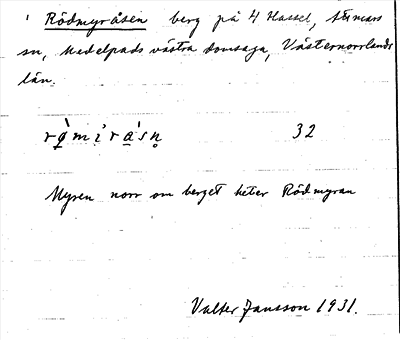 Rödmyråsen berg på 4 Hassel, Stöde
sn, Medelpads västra domsaga, Västernorrlands
län.
32
Myren norr om berget heter Rödmyran
Valter Jansson 1931.